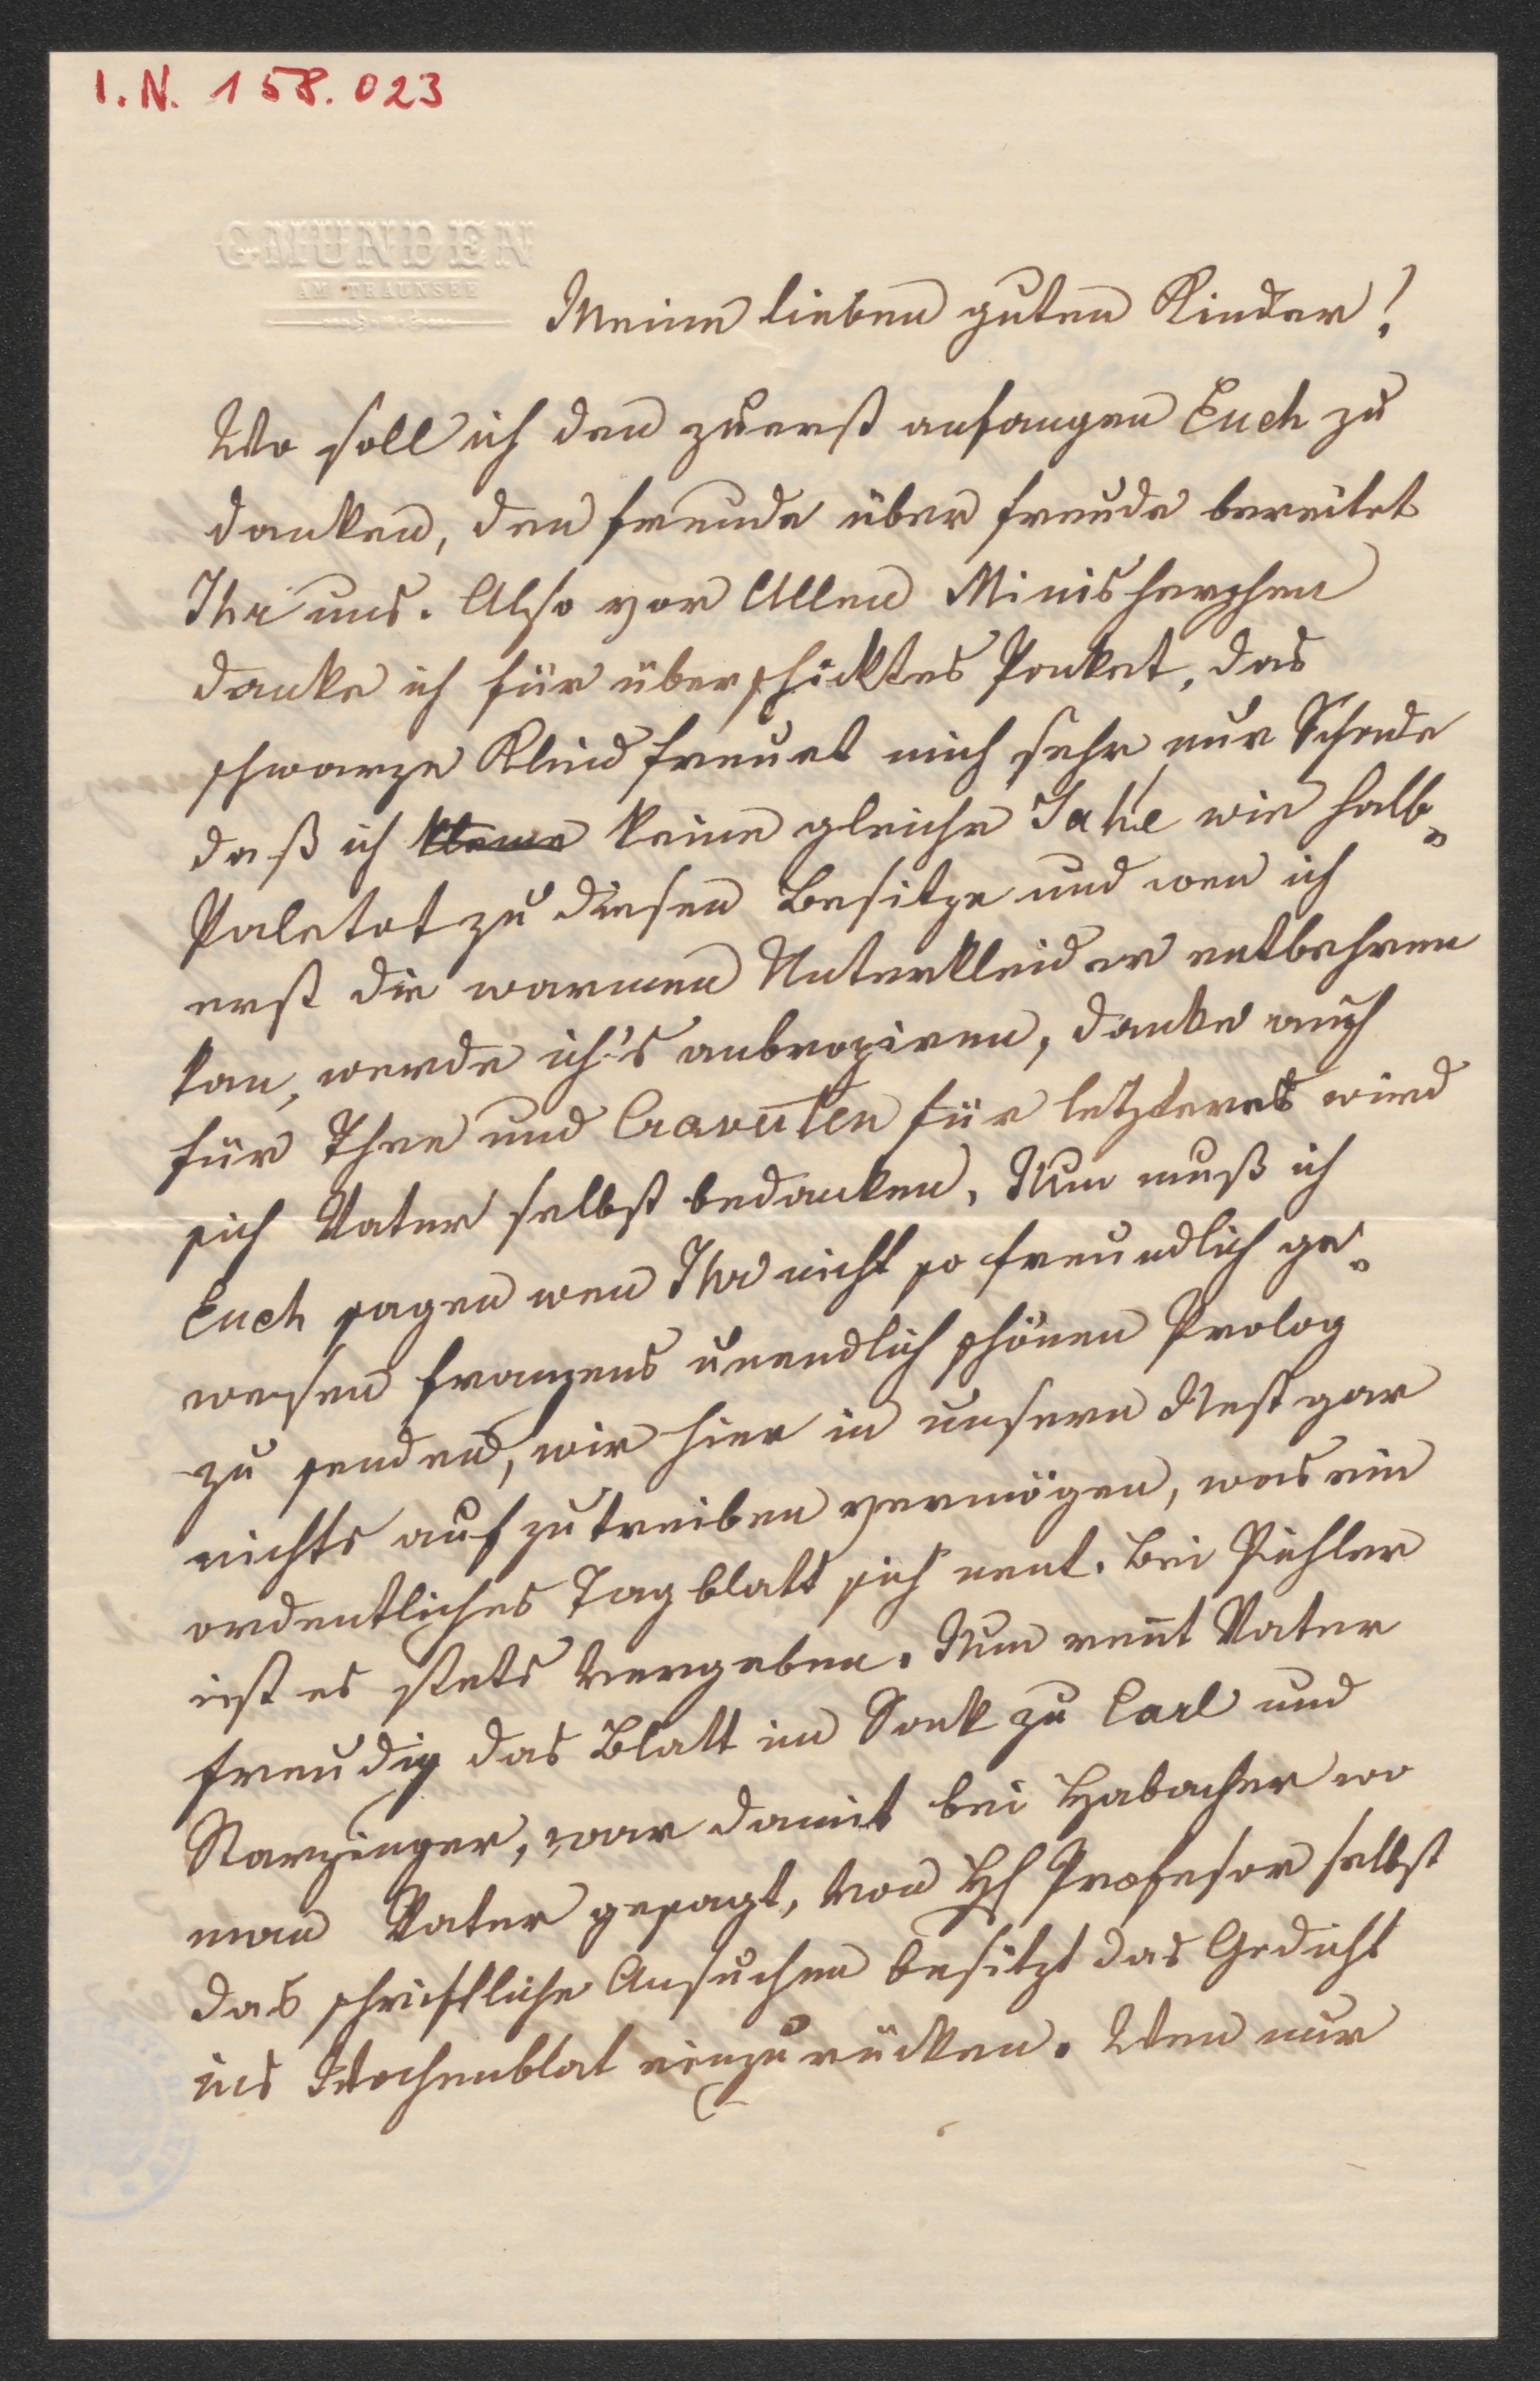 I.N. 158.023
GMUNDEN
AM TRAUNSEE
Meine lieben guten Kinder!
Wo soll ich den zuerst anfangen Euch zu
danken, den Freude über Freude bereitet
Ihr uns. Also vor Allen
danke ich für überschicktes Packet, das
schwarze Kleid freuet mich sehr nur Schade
daß ich keine gleiche Jake wie halb-
Paletot zu diesen Besitze und wen ich
erst die warmen Unterkleider entbehren
kan, werde ich's anbroziren, danke auch
für Thee und Cravaten für letzteres wird
sich Vater selbst bedanken. Nun muß ich
Euch sagen wen Ihr nicht so freundlich ge-
wesen Franzens unendlich schönen Prolog
zu senden, wir hier in unsern Nest gar
nichts aufzutreiben vermögen, was ein
ordentliches Tagblatt sich nent. Bei Pichler
ist es stets vergeben. Nun rent Vater
freudig das Blatt im Sack zu Carl und
Starzinger, war damit bei Habacher wo
man Vater gesagt, von H Profesor selbst
das schriftliche Ansuchen besitzt das Gedicht
ins Wochenblat einzurücken. Wen nur